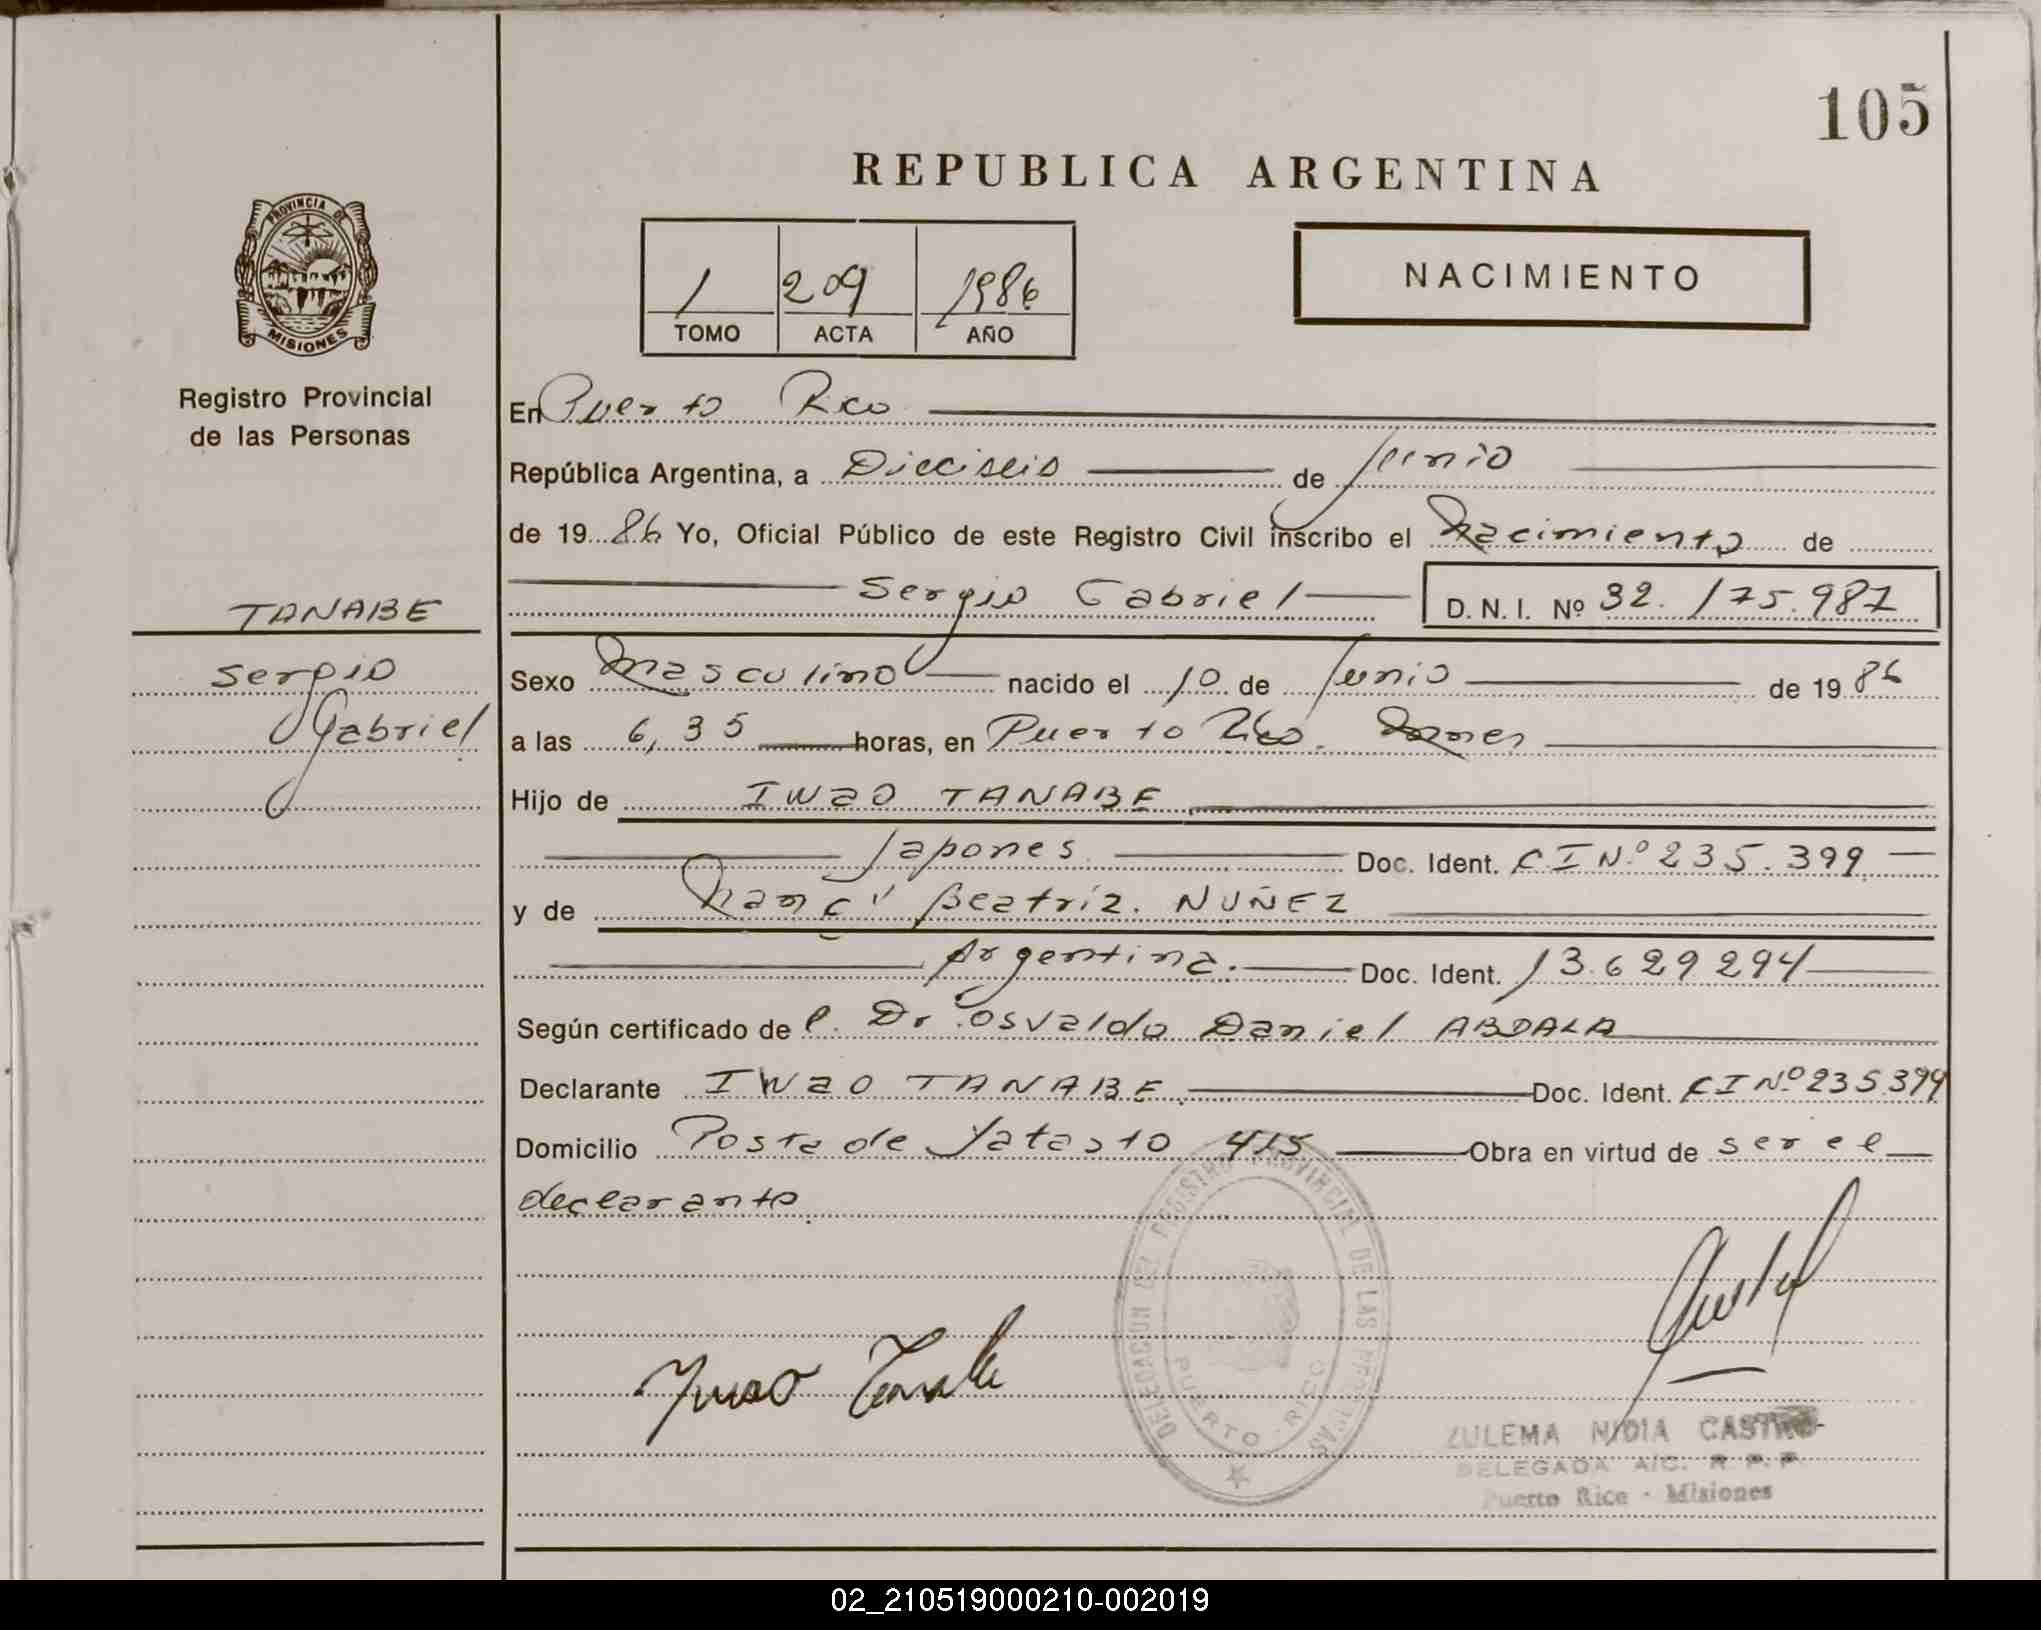 105
REPUBLICA ARGENTINA
PROVINCIA DE
MISIONES
Registro Provincial
de las Personas
1 209 1986
TOMO ACTA AÑO
NACIMIENTO
En Puerto Rico
República Argentina, a Dieciseis de Junio
de 1986 Yo, Oficial Público de este Registro Civil inscribo el Nacimiento de
Sergio Gabriel D. N. I. Nº 32.175.987
TANABE
Sergio
Gabriel
Sexo Masculino nacido el 10 de Junio de 1986
a las 6,35 horas, en Puerto Rico. Mnes
Hijo de Iwao TANABE
Japones Doc. Ident. CI Nº 235.399
y de Nancy Beatriz. NUÑEZ
Argentina. Doc. Ident. 13.629294
Según certificado de l. Dr. Osvaldo Daniel ABDALA
Declarante Iwao TANABE Doc. Ident. CI Nº 235399
Domicilio Posta de Yatasto 415 Obra en virtud de ser el
declarante.
DELEGACION DEL REGISTRO PROVINCIAL DE LAS PERSONAS
PUERTO - RICO
Iwao Tanabe
ZULEMA NIDIA CASTRO
DELEGADA A/C. R. P. P.
Puerto Rico - Misiones
02_210519000210-002019